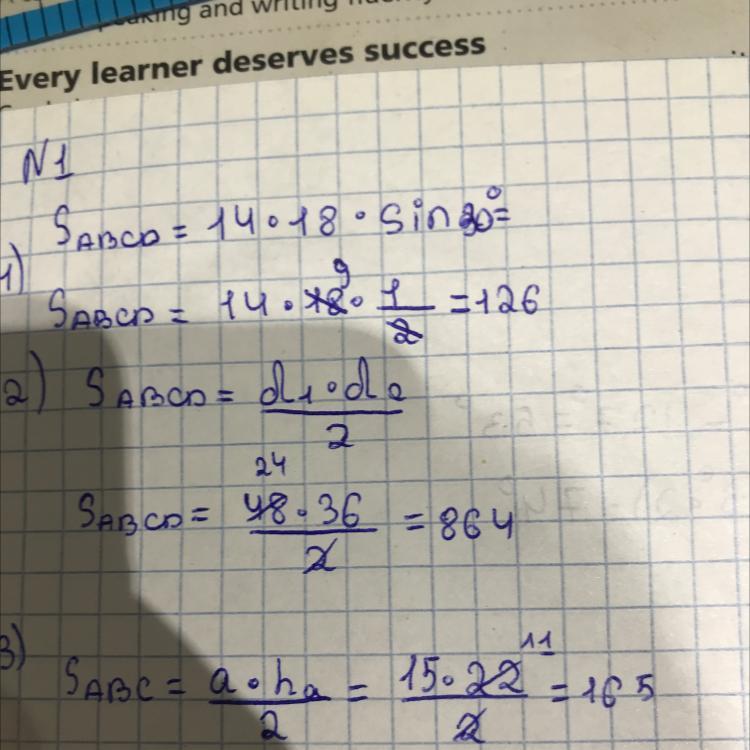 speaking and writing
Every learner deserves success
N1
S_ABCD = 14 · 18 · sin 30° =
1)
S_ABCD = 14 · 18 9 · 1/2 = 126
2) S_ABCD = d1 · d2 / 2
S_ABCD = 48 24 · 36 / 2 = 864
3) S_ABC = a · ha / 2 = 15 · 22 11 / 2 = 165